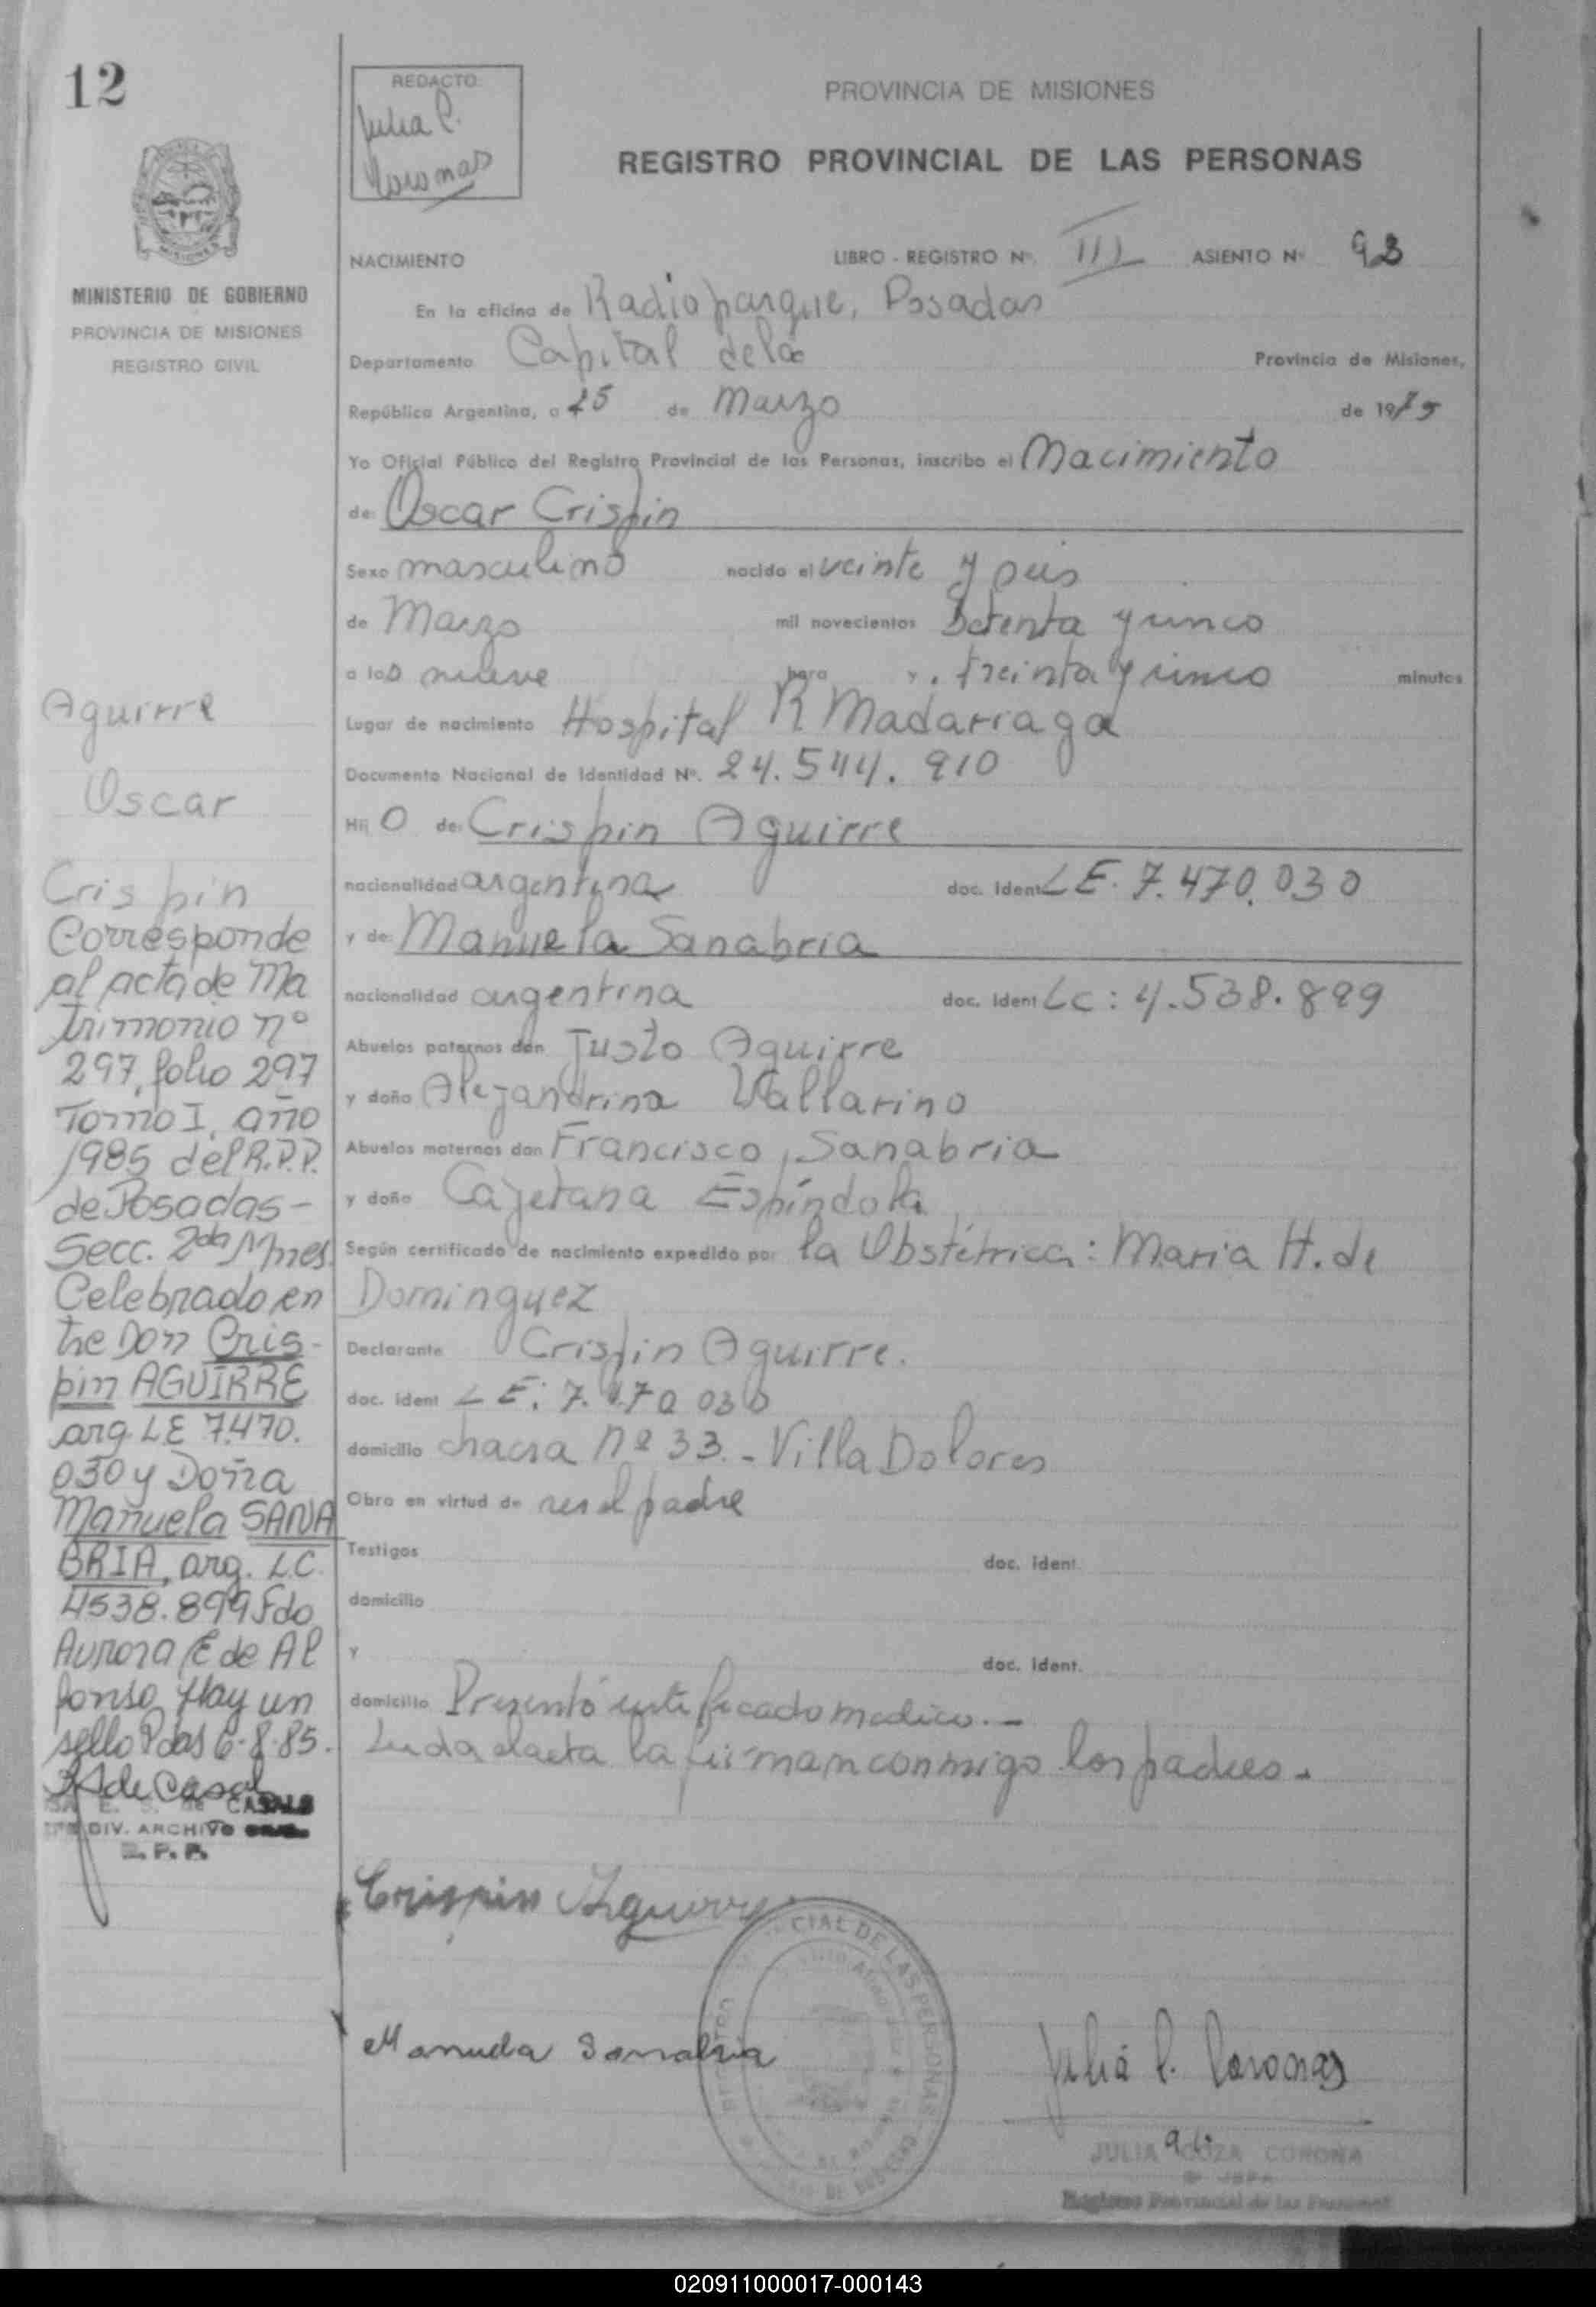 12
REDACTO:
Julia P.
Coronas
PROVINCIA DE MISIONES
REGISTRO PROVINCIAL DE LAS PERSONAS
MISIONES
MINISTERIO DE GOBIERNO
PROVINCIA DE MISIONES
REGISTRO CIVIL
NACIMIENTO LIBRO - REGISTRO Nº. III ASIENTO Nº 93
En la oficina de Radioparque, Posadas
Departamento Capital dela Provincia de Misiones,
República Argentina, a de Marzo de 19
Yo Oficial Público del Registro Provincial de las Personas, inscribo el Nacimiento
de: Oscar Crispin
Sexo masculino nacido el veinte y seis
de Marzo mil novecientos Setenta y cinco
a las nueve hora y. treinta y cinco minutos
Lugar de nacimiento Hospital R Madariaga
Documento Nacional de Identidad Nº. 24.544.910
Hij O de: Crispin Aguirre
nacionalidad argentina doc. Ident LE. 7.470.030
y de: Manuela Sanabria
nacionalidad argentina doc. Ident LC: 4.538.899
Abuelos paternos don Justo Aguirre
y doña Alejandrina Vallarino
Abuelos maternos don Francisco Sanabria
y doña Cajetana Espíndola
Según certificado de nacimiento expedido por la Obstétrica: Maria H. de
Dominguez
Declarante Crispin Aguirre.
doc. ident LE: 7.470 030
domicilio chacra nº 33.- Villa Dolores
Obra en virtud de ser el padre
Testigos doc. ident.
domicilio
y doc. ident.
domicilio Presentó certificado medico.-
Leida el acta la firman conmigo los padres.
Aguirre
Oscar
Crispin
Corresponde
al acta de Ma
trimonio nº
297, folio 297
Tomo I, año
1985 del R.P.P.
de Posadas-
Secc. 2da Mnes.
Celebrado en
tre Don Cris-
pin AGUIRRE
arg. LE 7.470.
030 y Doña
Manuela SANA
BRIA, arg. L.C.
4538.899 Fdo
Aurora E de Al
fonso, Hay un
sello Pdas 6-8-85.
de Casal
E. S. de CASALS
DIV. ARCHIVO
R. P. P.
Crispin Aguirre
Manuela Sanabria
CIAL DE LAS PERSONAS
Julia P. Coronas
JULIA CORONA
Registro Provincial de las Personas
020911000017-000143